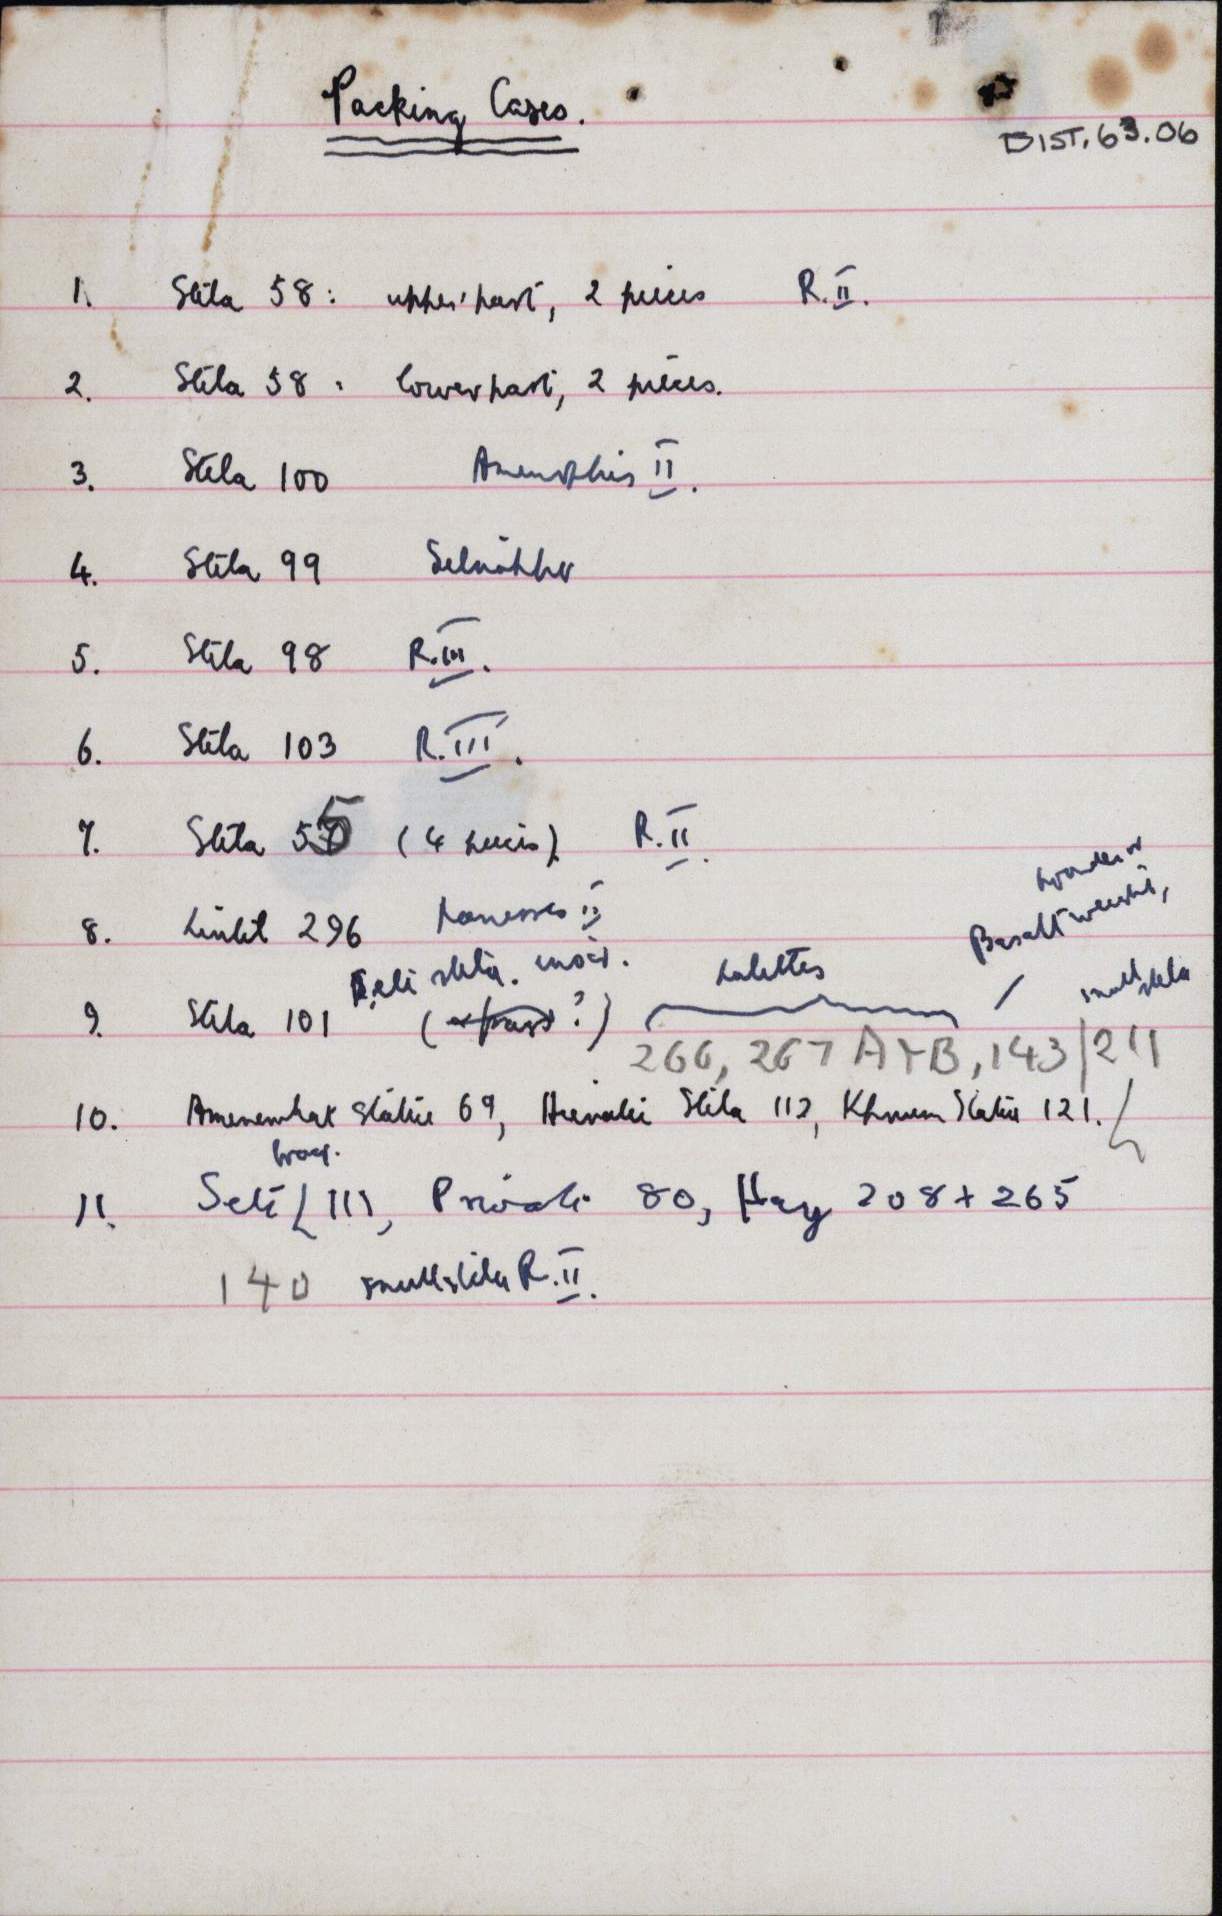 Packing Cases.
DIST.63.06
1. Stela 58: upper part, 2 pieces R.II.
2. Stela 58: lower part, 2 pieces.
3. Stela 100 Amenophis II.
4. Stela 99
5. Stela 98 R.III.
6. Stela 103 R.III.
7. Stela 55 (4 pieces) R.II.
8. Lintel 296 Ramesses II
9. Stela 101 Seti stela.
palettes
Basalt weight,
small stela
266, 267 A+B, 143/211
10. Amenemhat Statue 69, Hieratic Stela 112, Khnum Statue 121.
frag.
11. Seti 111, Private 80, Hay 208+265
140 small stela R.II.